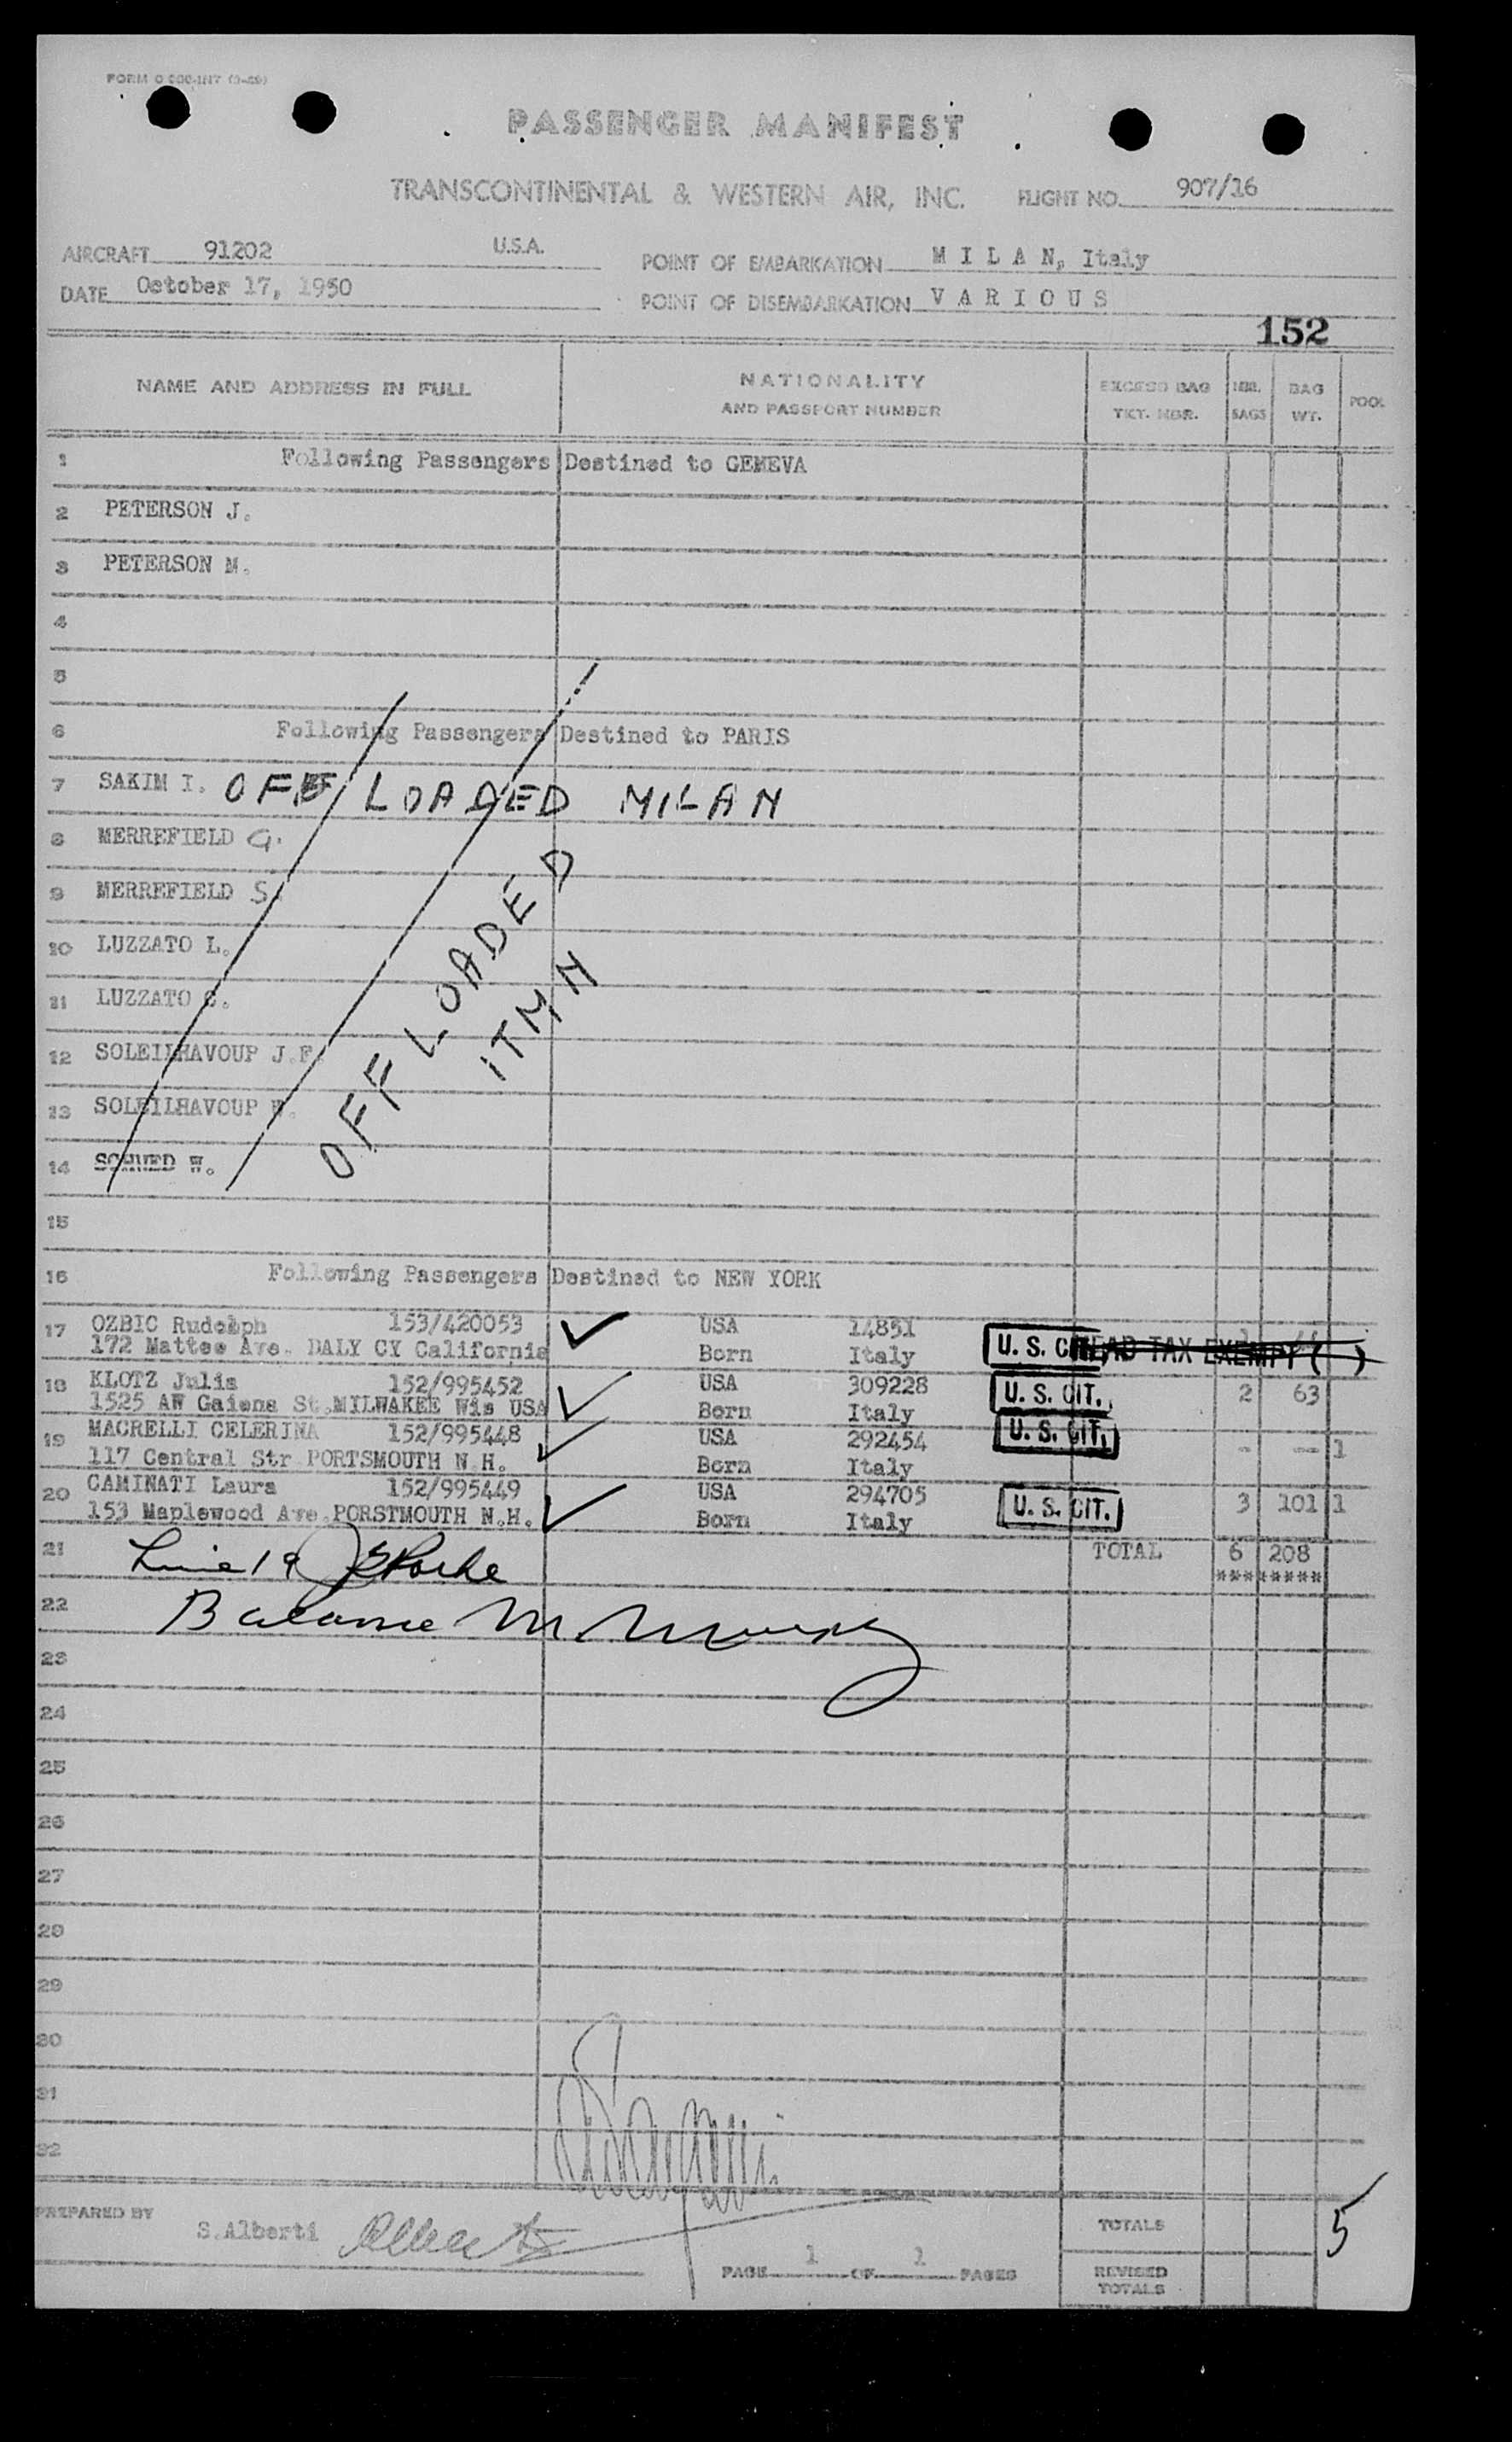 PASSENGER MANIFEST
TRANSCONTINENTAL & WESTERN AIR, INC. FLIGHT NO. 907/16
AIRCRAFT 91202 U.S.A. POINT OF EMBARKATION MILAN, Italy
DATE October 17, 1950 POINT OF DISEMBARKATION VARIOUS
152
NAME AND ADDRESS IN FULL NATIONALITY AND PASSPORT NUMBER EXCESS BAG TKT. NBR. NBR. BAGS BAG WT. POOL
1 Following Passengers Destined to GENEVA
2 PETERSON J.
3 PETERSON M.
4
5
6 Following Passengers Destined to PARIS
7 SAKIM I. OFF LOADED MILAN
8 MERREFIELD G.
9 MERREFIELD S.
10 LUZZATO L.
11 LUZZATO G.
12 SOLEILHAVOUP J.F.
13 SOLEILHAVOUP W.
14 W.
OFF LOADED
15
16 Following Passengers Destined to NEW YORK
17 OZBIC Rudolph 153/420053 USA 14851
172 Mattee Ave. DALY CY California Born Italy U. S. CIT. HEAD TAX EXEMPT ( )
18 KLOTZ Julia 152/995452 USA 309228 U. S. CIT. 2 63
1525 AW Gaiena St.MILWAKEE Wis USA Born Italy
19 MACRELLI CELERINA 152/995448 USA 292454 U. S. CIT. - -- 1
117 Central Str PORTSMOUTH N.H. Born Italy
20 CAMINATI Laura 152/995449 USA 294705 U. S. CIT. 3 101 1
153 Maplewood Ave.PORSTMOUTH N.H. Born Italy
21 Line 19 TOTAL 6 208
*** *****
22 Balance M.
23
24
25
26
27
28
29
30
31
32
PREPARED BY S.Alberti TOTALS 5
PAGE 1 OF 1 PAGES REVISED TOTALS